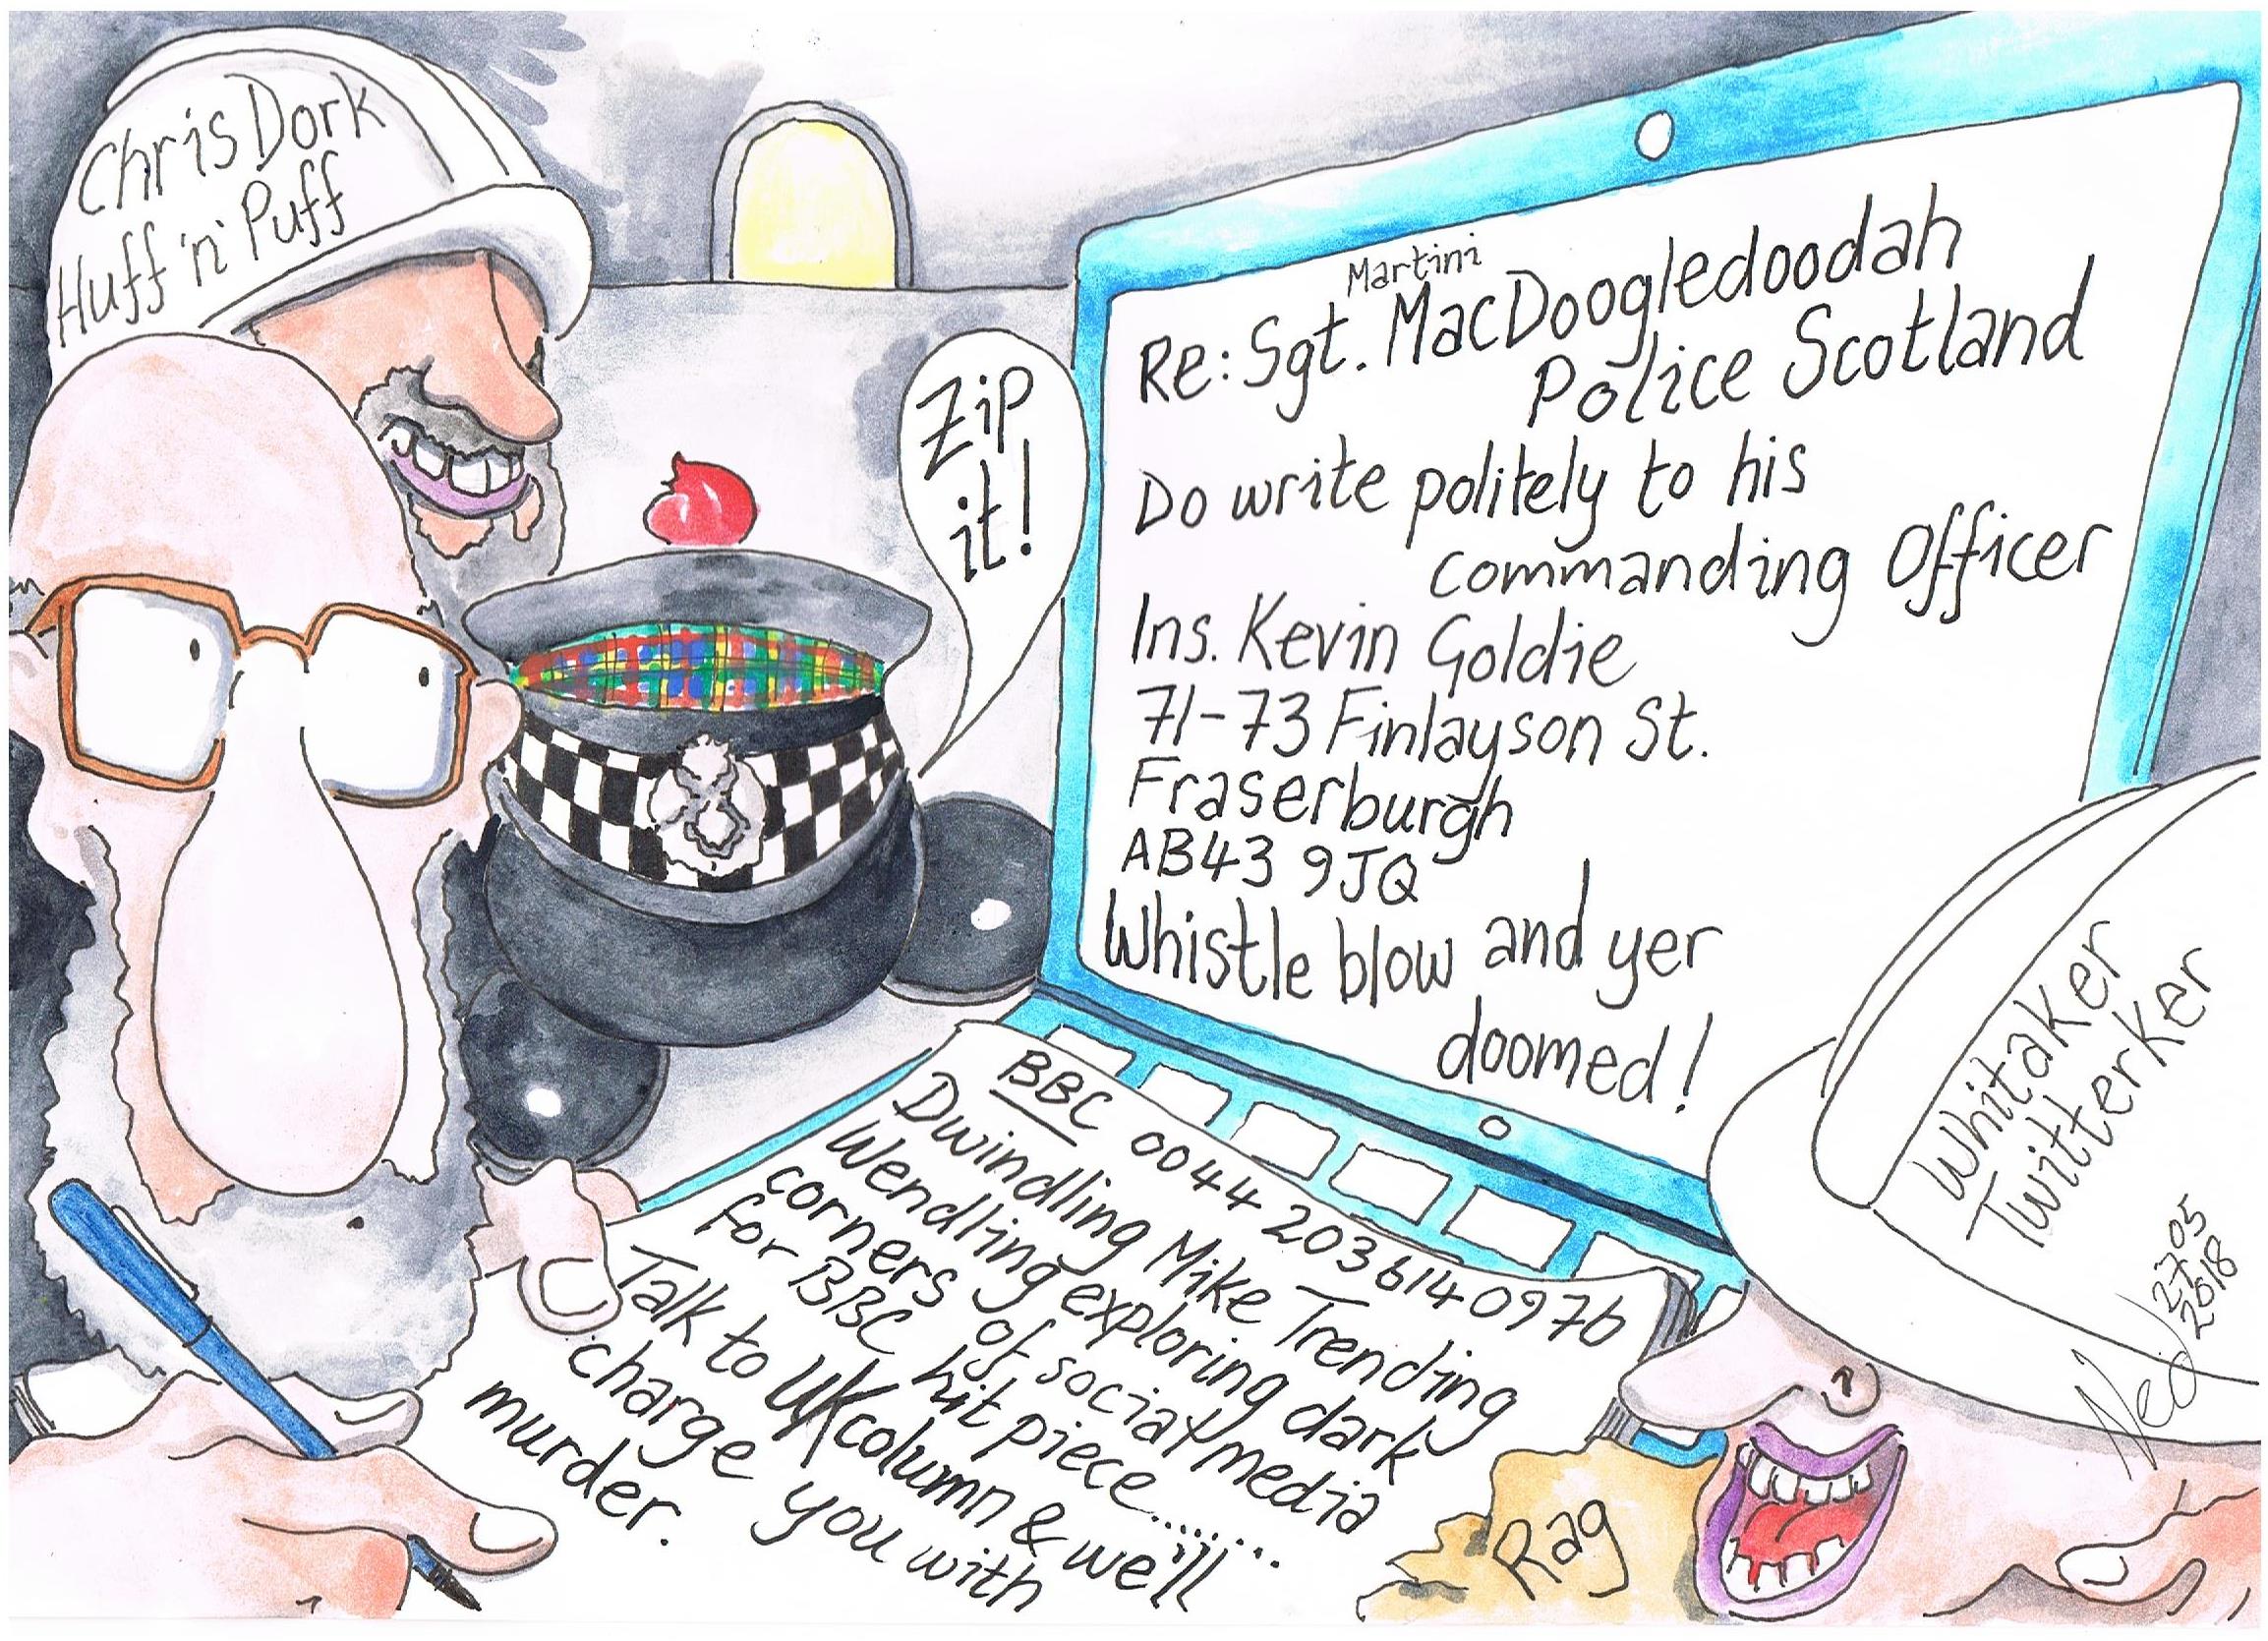 Chris Dork
Huff 'n' Puff
Zip
it!
Martini
Re: Sgt. MacDoogledoodah
Police Scotland
Do write politely to his
commanding Officer
Ins. Kevin Goldie
71-73 Finlayson St.
Fraserburgh
AB43 9JQ
Whistle blow and yer
doomed!
BBC 0044 203 614 0976
Dwindling Mike Trending
Wendling exploring dark
corners of social media
for BBC hit piece.........
Talk to UKcolumn & we'll
charge you with
murder.
Whitaker
Twitterker
Rag
Ned
27 05
2018